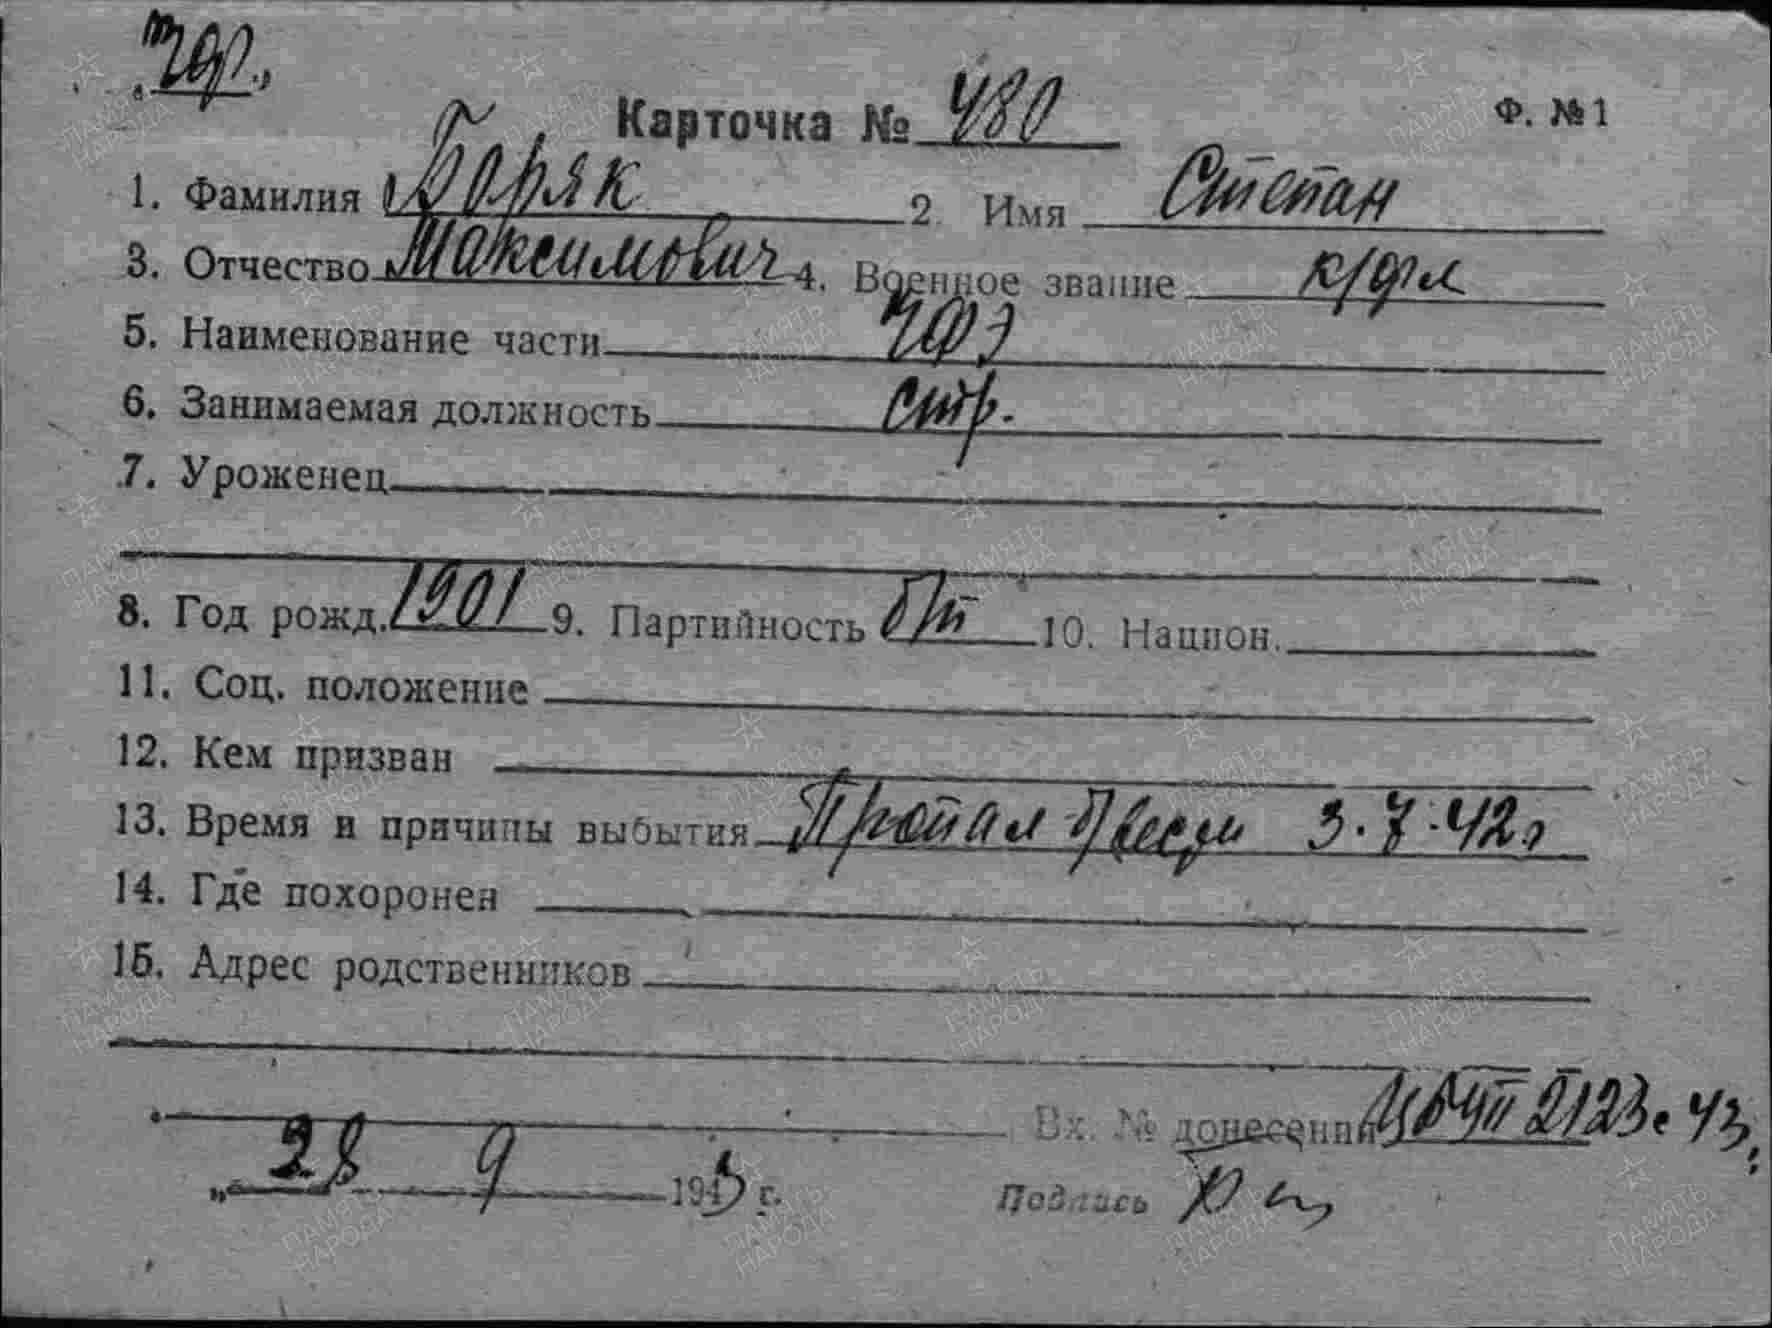 Карточка № 480 Ф. № 1
1. Фамилия Боряк 2. Имя Степан
3. Отчество Максимович 4. Военное звание к/фл
5. Наименование части ЧФ
6. Занимаемая должность стр.
7. Уроженец
8. Год рожд. 1901 9. Партийность б/п 10. Национ.
11. Соц. положение
12. Кем призван
13. Время и причины выбытия Пропал безвести 3.7.42 г
14. Где похоронен
15. Адрес родственников
Вх. № донесения 2123с 43
"28 9 1943 г. Подпись
ПАМЯТЬ НАРОДА